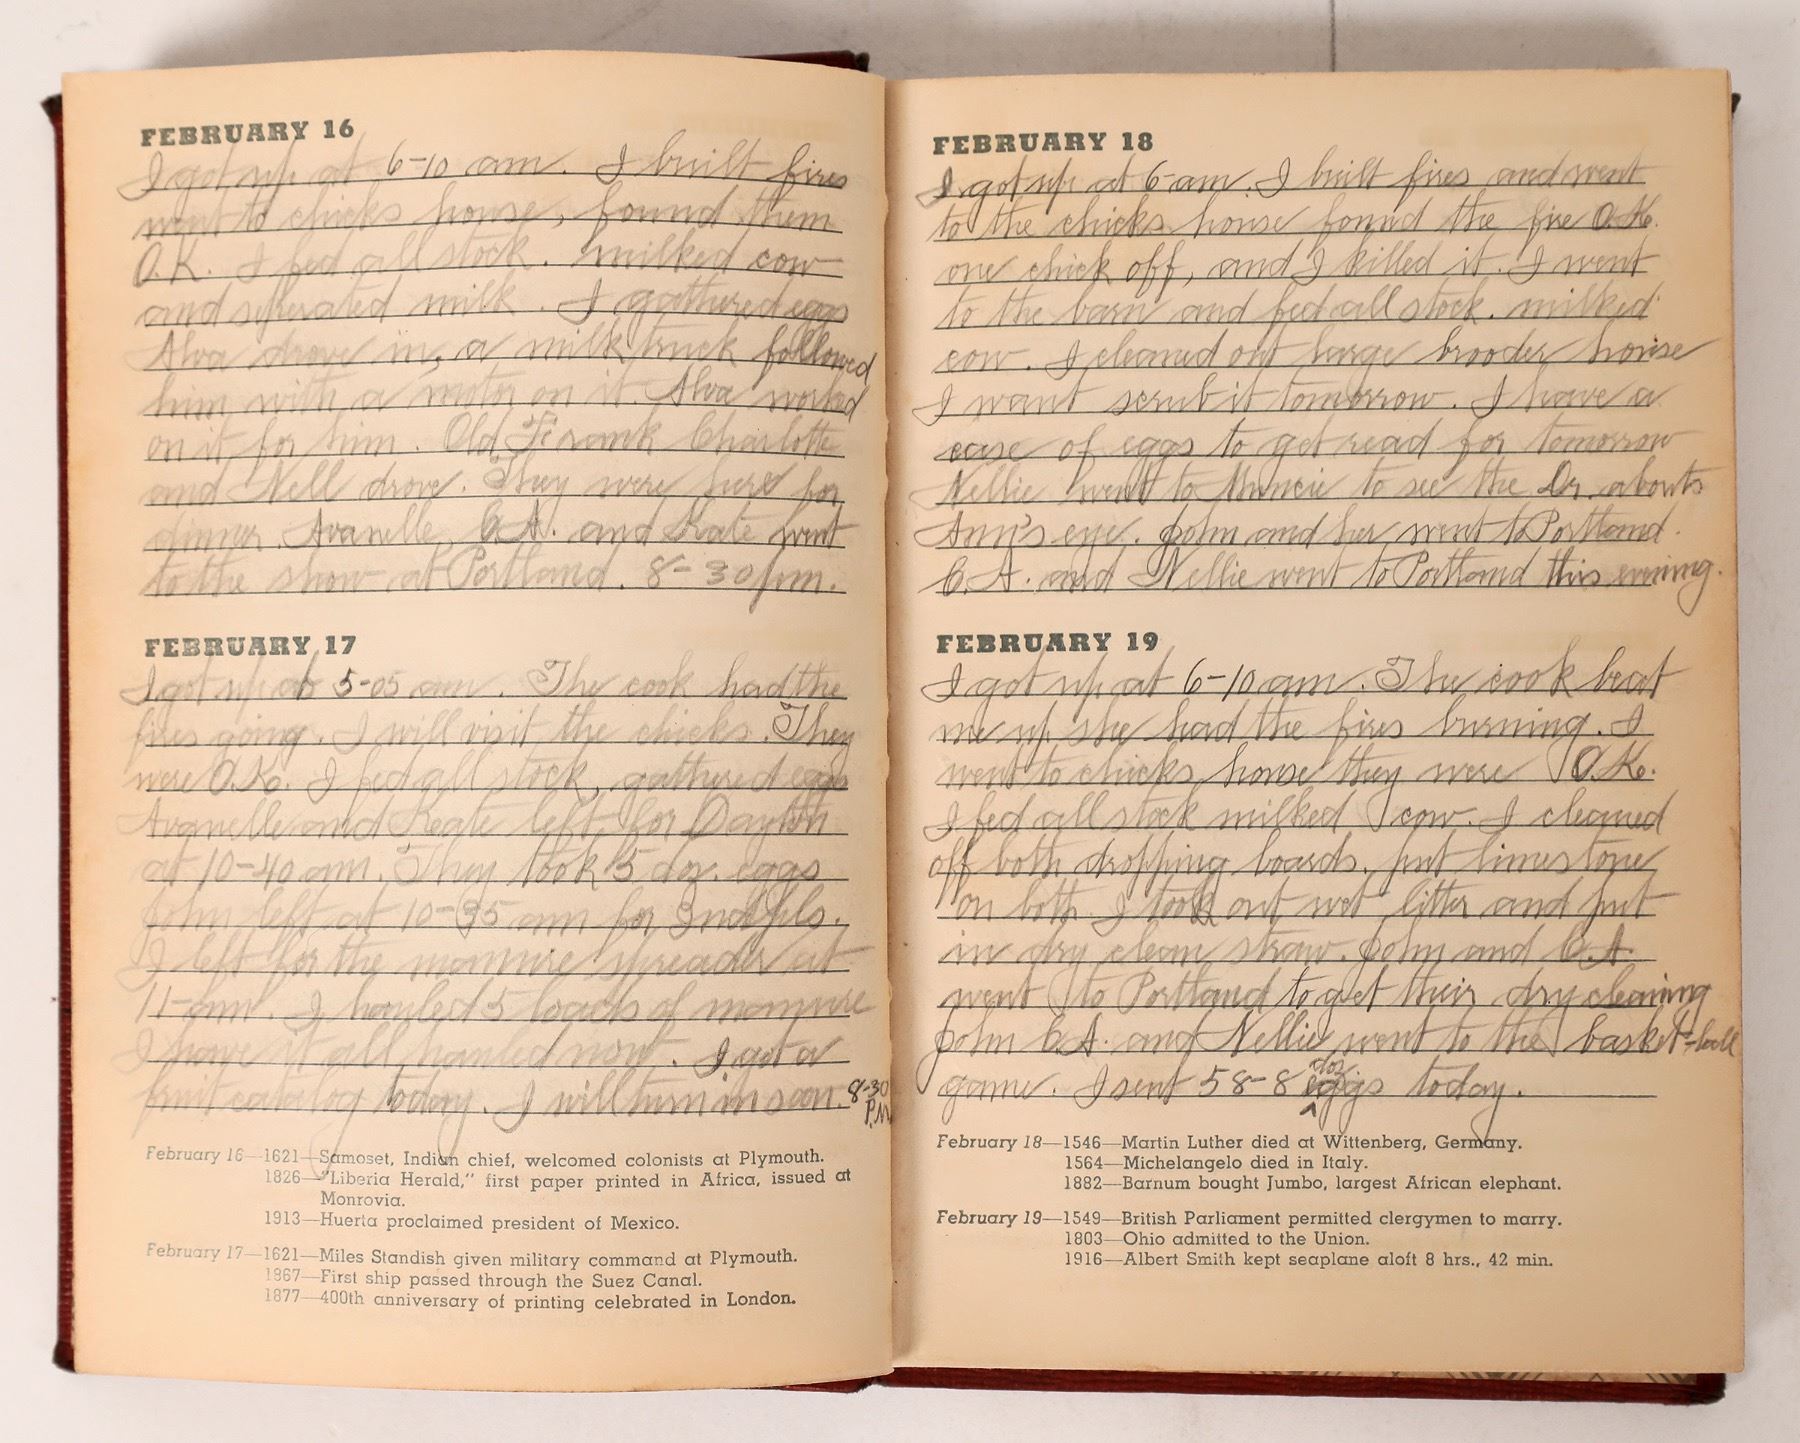 FEBRUARY 16
I got up at 6-10 am. I built fires
went to chicks house, found them
O.K. I fed all stock. milked cow
and seperated milk. I gathered eggs
Alva drove in, a milk truck followed
him with a motor on it. Alva worked
on it for him. Old Frank Charlotte
and Nell drove. They were here for
dinner. Avanelle, C.A. and Kate went
to the show at Portland. 8-30 pm.
FEBRUARY 17
I got up at 5-05 am. The cook had the
fires going. I will visit the chicks. They
were O.K. I fed all stock, gathered eggs
Avanelle and Keate left for Dayton
at 10-40 am. They took 5 doz. eggs
John left at 10-35 am for Indpls.
I left for the mannure spreader at
11-am. I hauled 5 loads of mannure
I have it all hauled now. I got a
fruit catalog today. I will turn in soon. 8-30
P.M.
February 16—1621—Samoset, Indian chief, welcomed colonists at Plymouth.
1826—"Liberia Herald," first paper printed in Africa, issued at
Monrovia.
1913—Huerta proclaimed president of Mexico.
February 17—1621—Miles Standish given military command at Plymouth.
1867—First ship passed through the Suez Canal.
1877—400th anniversary of printing celebrated in London.
FEBRUARY 18
I got up at 6 am. I built fires and went
to the chicks house found the fire O.K.
one chick off, and I killed it. I went
to the barn and fed all stock. milked
cow. I cleaned out large brooder house
I want scrub it tomorrow. I have a
case of eggs to get read for tomorrow
Nellie went to Muncie to see the Dr. abouts
Ann's eye. John and her went to Portland.
C.A. and Nellie went to Portland this evining.
FEBRUARY 19
I got up at 6-10 am. The cook beat
me up she had the fires burning. I
went to chicks house they were O.K.
I fed all stock milked cow. I cleaned
off both dropping boards. put limestone
on both. I took out wet litter and put
in dry clean straw. John and C.A.
went to Portland to get their dry cleaning
John C.A. and Nellie went to the basket-ball
game. I sent 58-8 doz eggs today.
February 18—1546—Martin Luther died at Wittenberg, Germany.
1564—Michelangelo died in Italy.
1882—Barnum bought Jumbo, largest African elephant.
February 19—1549—British Parliament permitted clergymen to marry.
1803—Ohio admitted to the Union.
1916—Albert Smith kept seaplane aloft 8 hrs., 42 min.